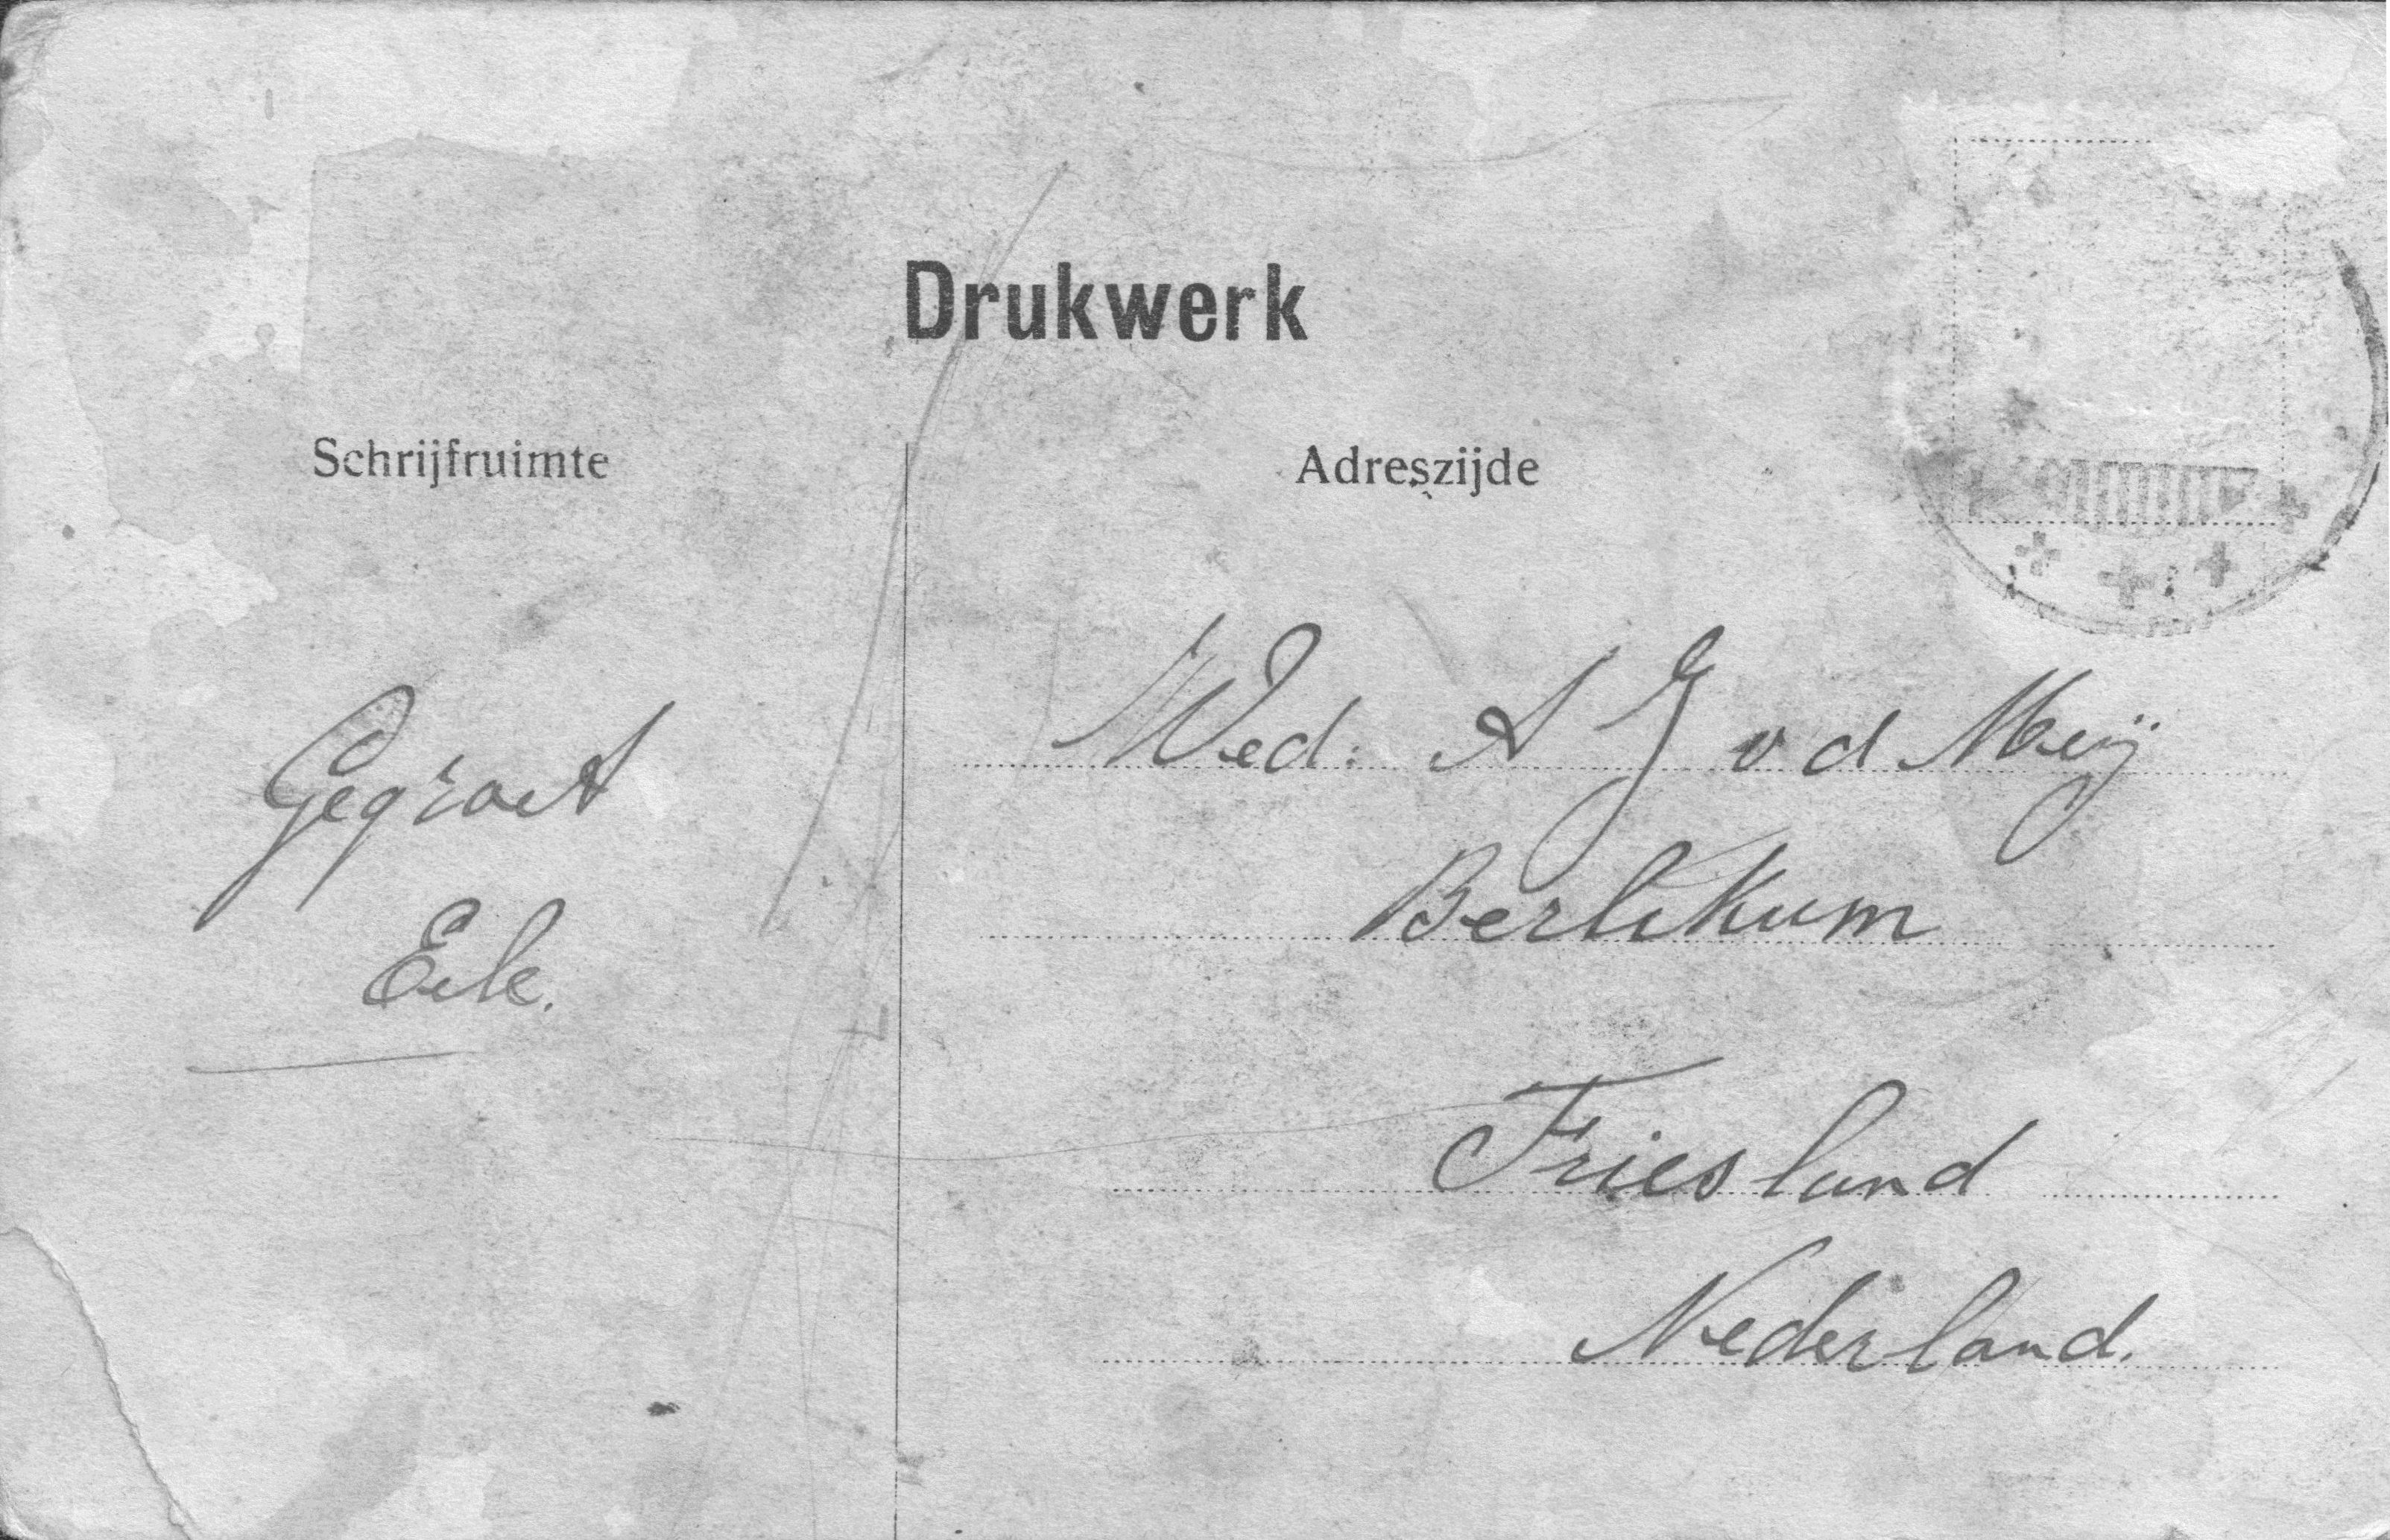 Drukwerk
Schrijfruimte
Adreszijde
Gegroet
Eele.
Wed: A J v d Meij
Berlikum
Friesland
Nederland.